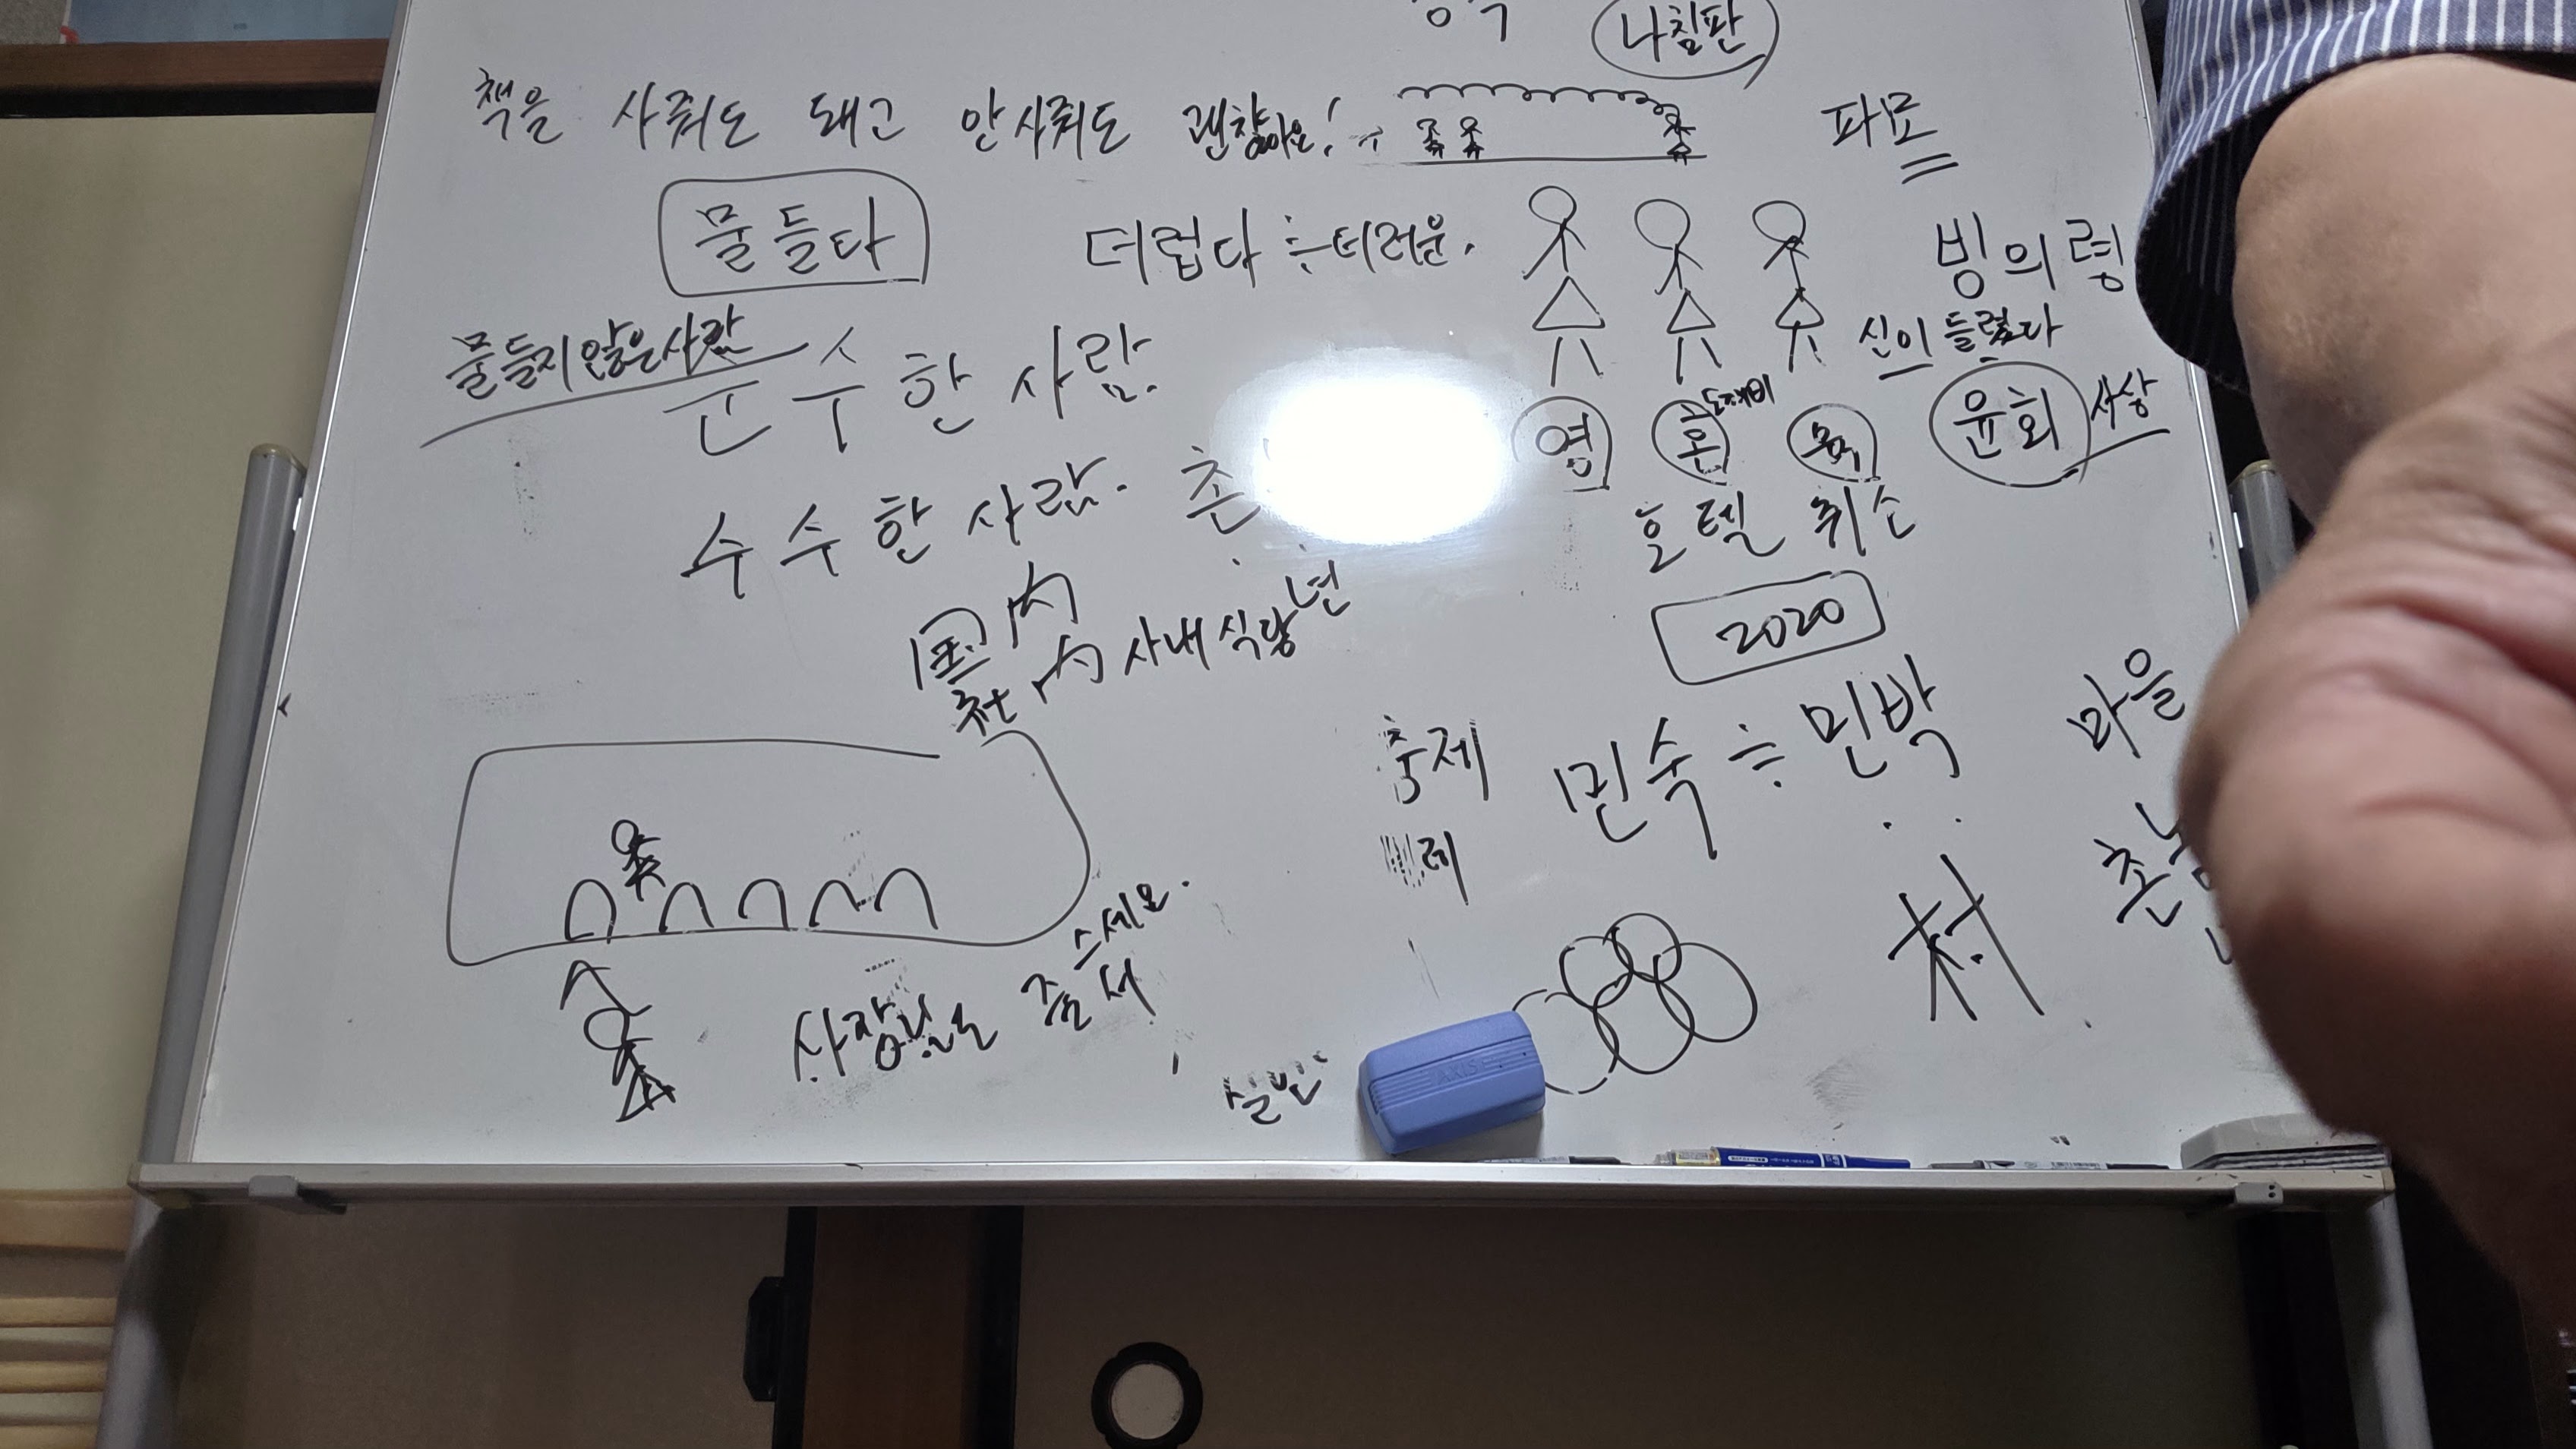 나침판
책을 사줘도 돼고 안사줘도 괜찮아요!
파묘
물들다
더럽다 ≒ 더러운.
빙의령
물들지 않은 사람
순수한 사람.
신이 들렸다
영 혼 도깨비 육
윤회 사상
수수한 사람. 촌
호텔 취소
国内
社内 사내식당
년
2020
축제
민숙 ≒ 민박
마을
제
촌
村
사장님도 줄서
스세요.
실민
AXIS